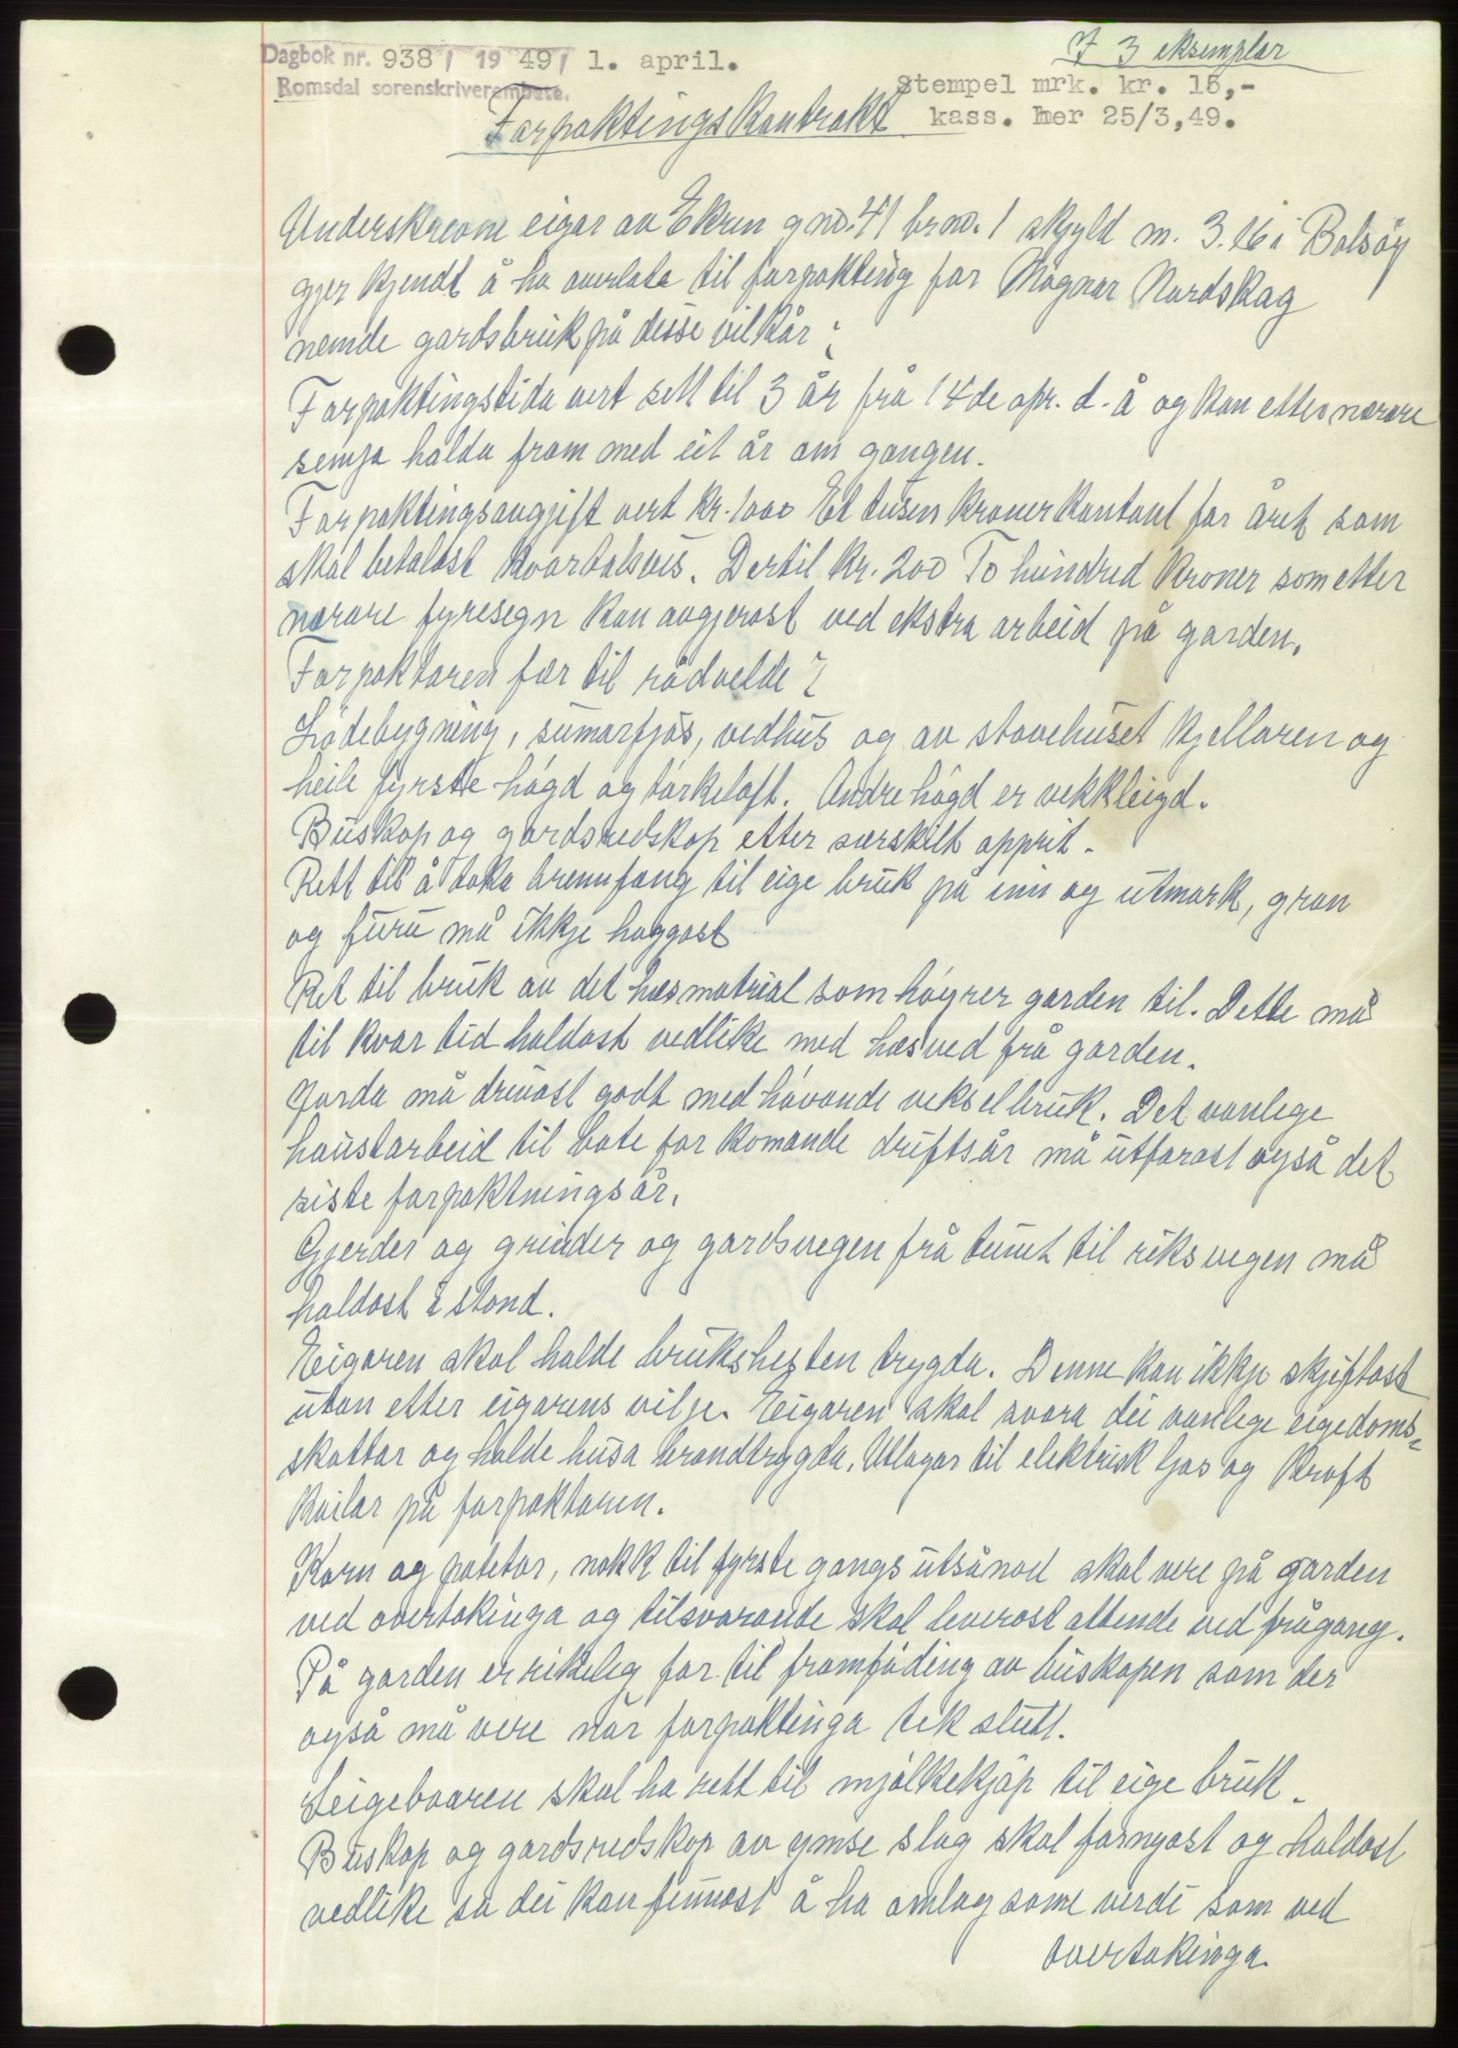 I 3 eksemplar
Dagbok nr. 938/ 19 49/ 1. april.
Romsdal sorenskriverembete.
Stempel mrk. kr. 15,-
kass. her 25/3,49.
Forpaktingskontrakt
Underskrevne eigar av Ekren gno. 41 brno. 1 skyld m. 3.16 i Bolsøy
gjer kjendt å ha overlate til forpakting for Magnar Nordskag
nemde gardsbruk på disse vilkår:
Forpaktingstida vert sett til 3 år frå 14de apr. d. å og kan etter nærare
semja halda fram med eit år om gangen.
Forpaktingsavgift vert kr. 1000 Et tusen kroner kontant for året som
skal betalast kvartalsvis. Dertil kr. 200 To hundred kroner som etter
nærare fyresegn kan avgjerast ved ekstra arbeid på garden.
Forpaktaren fær til rådvelde:
Lødebygning, sumarfjøs, vedhus og av stovehuset kjellaren og
heile fyrste høgd og tørkeloft. Andre høgd er vekkleigd.
Buskap og gardsredskap etter særskilt opprit.
Rett til å taka brennfang til eige bruk på inn og utmark, gran
og furu må ikkje haggast
Ret til bruk av det hesmatrial som høyrer garden til. Dette må
til kvar tid haldast vedlike med hesved frå garden.
Jorda må drivast godt med høvande vekselbruk. Det vanlege
haustarbeid til bate for komande driftsår må utførast også det
siste forpaktningsår.
Gjerder og grinder og gardsvegen frå tunet til riksvegen må
haldast i stand.
Eigaren skal halde brukshesten trygda. Denne kan ikkje skiftast
utan etter eigarens vilje. Eigaren skal svara dei vanlege eigedoms-
skattar og halde husa brandtrygda. Utlagar til elektrisk ljos og kraft
kvilar på forpaktaren.
Korn og potetor, nokk til fyrste gangs utsånad skal vere på garden
ved overtakinga og tilsvarande skal leverast attende ved frågang.
På garden er rikeleg for til framføding av buskapen som der
også må vere når forpaktinga tek slutt.
Leigebuaren skal ha rett til mjølkekjøp til eige bruk.
Buskap og gardsredskap av ymse slag skal fornyast og haldast
vedlike so dei kan finnast å ha omlag same verdi som ved
overtakinga.